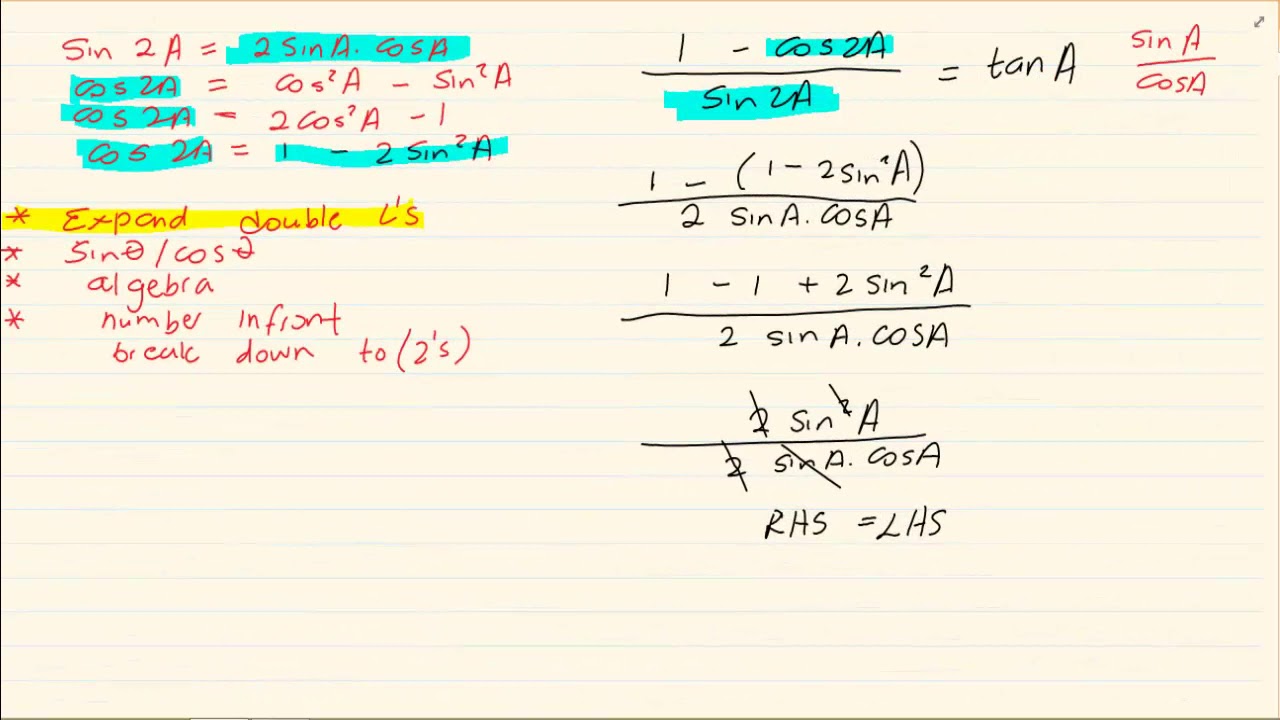 Sin 2A = 2 SinA. COSA
cos 2A = cos²A - Sin²A
cos 2A = 2cos²A - 1
cos 2A = 1 - 2 Sin²A
* Expand double ∠'s
* Sinθ/cosθ
* algebra
* number infront
break down to (2's)
1 - cos2A
Sin 2A
= tan A
sin A
cosA
1 - (1 - 2sin²A)
2 sinA. cosA
1 - 1 + 2 sin²A
2 sin A. cosA
2 sin²A
2 sinA. cosA
RHS = LHS